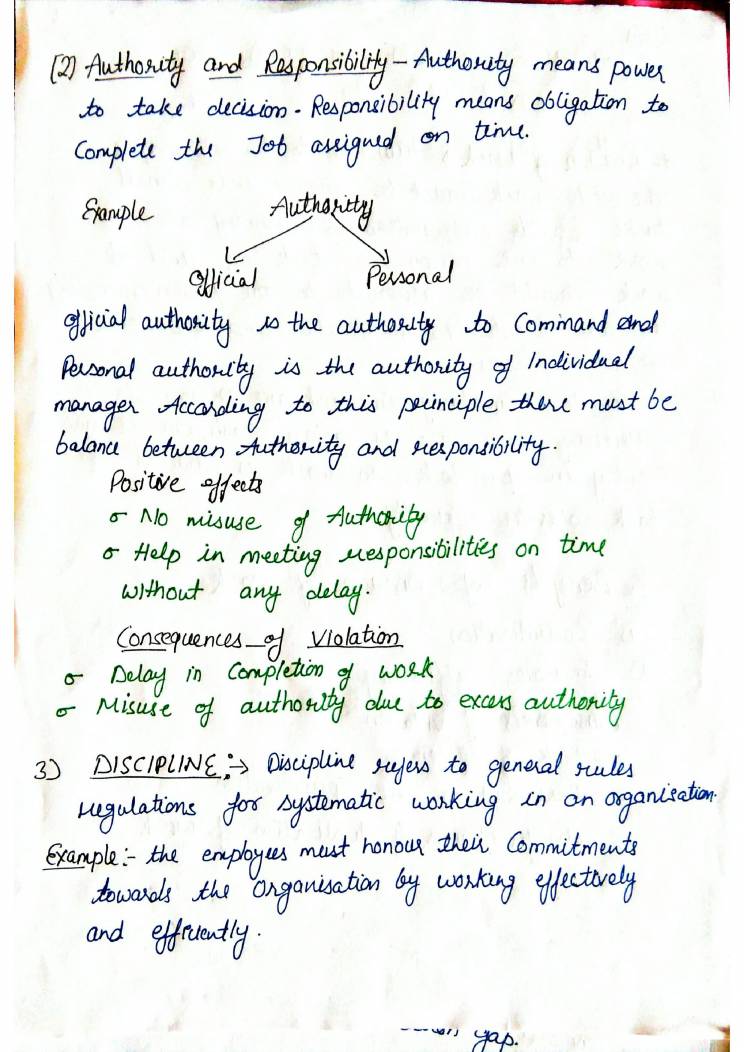 (2) Authority and Responsibility - Authority means power
to take decision. Responsibility means obligation to
Complete the Job assigned on time.
Example Authority
Official Personal
Official authority is the authority to Command and
Personal authority is the authority of Individual
manager According to this principle there must be
balance between Authority and responsibility.
Positive effects
No misuse of Authority
Help in meeting responsibilities on time
without any delay.
Consequences of Violation
Delay in Completion of work
Misuse of authority due to excess authority
3) DISCIPLINE :→ Discipline refers to general rules
regulations for systematic working in an organisation.
Example :- the employees must honour their Commitments
towards the Organisation by working effectively
and efficiently.
gap.